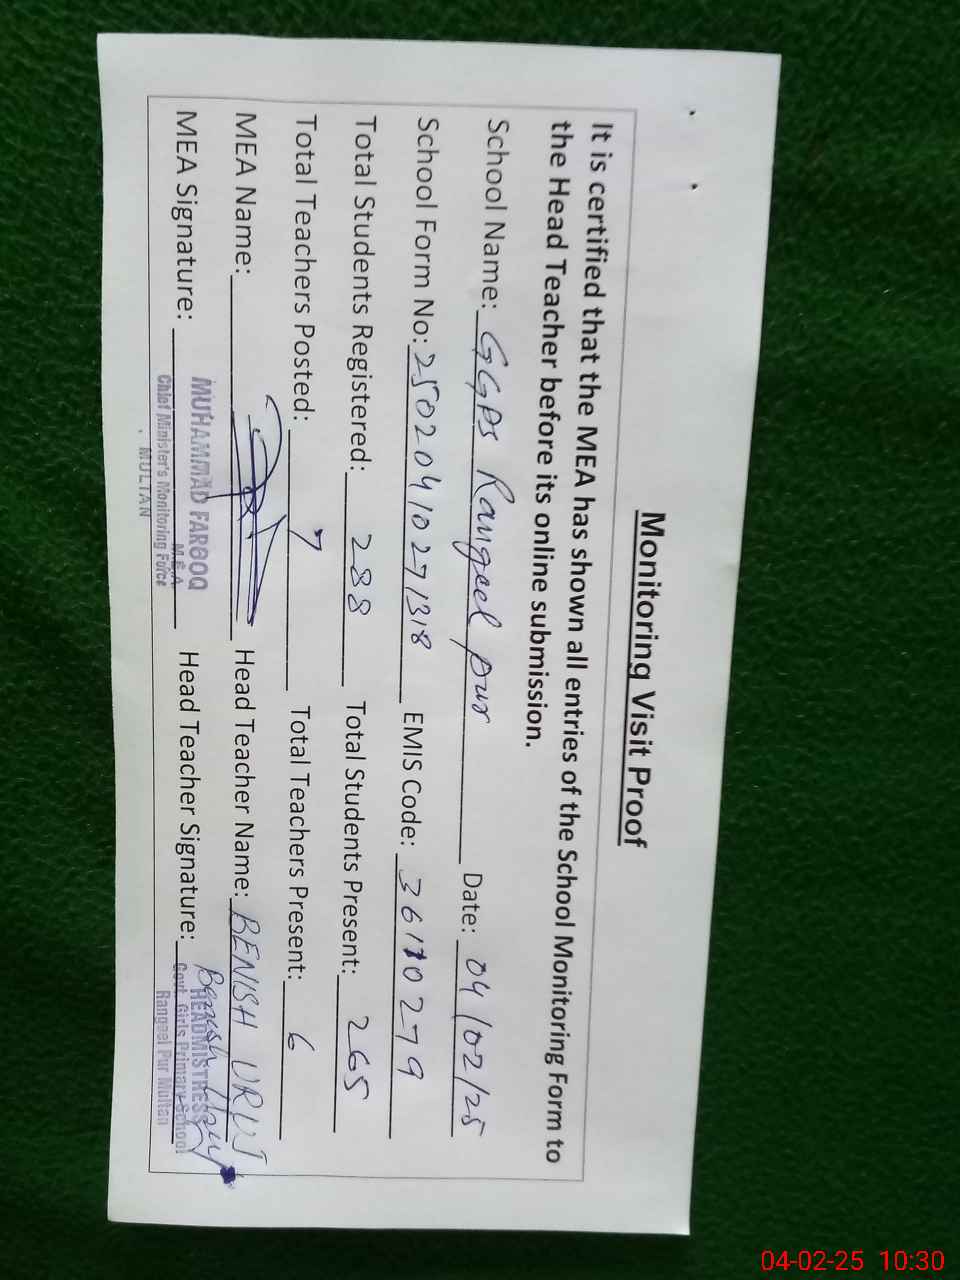 Monitoring Visit Proof
It is certified that the MEA has shown all entries of the School Monitoring Form to
the Head Teacher before its online submission.
School Name: GGPS Rangeel pur Date: 04/02/25
School Form No: 25020410271318 EMIS Code: 36110279
Total Students Registered: 288 Total Students Present: 265
Total Teachers Posted: 7 Total Teachers Present: 6
MEA Name: Head Teacher Name: BENISH URUJ
MEA Signature: Head Teacher Signature:
MUHAMMAD FAROOQ
M.E.A
Chief Minister's Monitoring Force
MULTAN
HEADMISTRESS
Govt. Girls Primary School
Rangeel Pur Multan
04-02-25 10:30